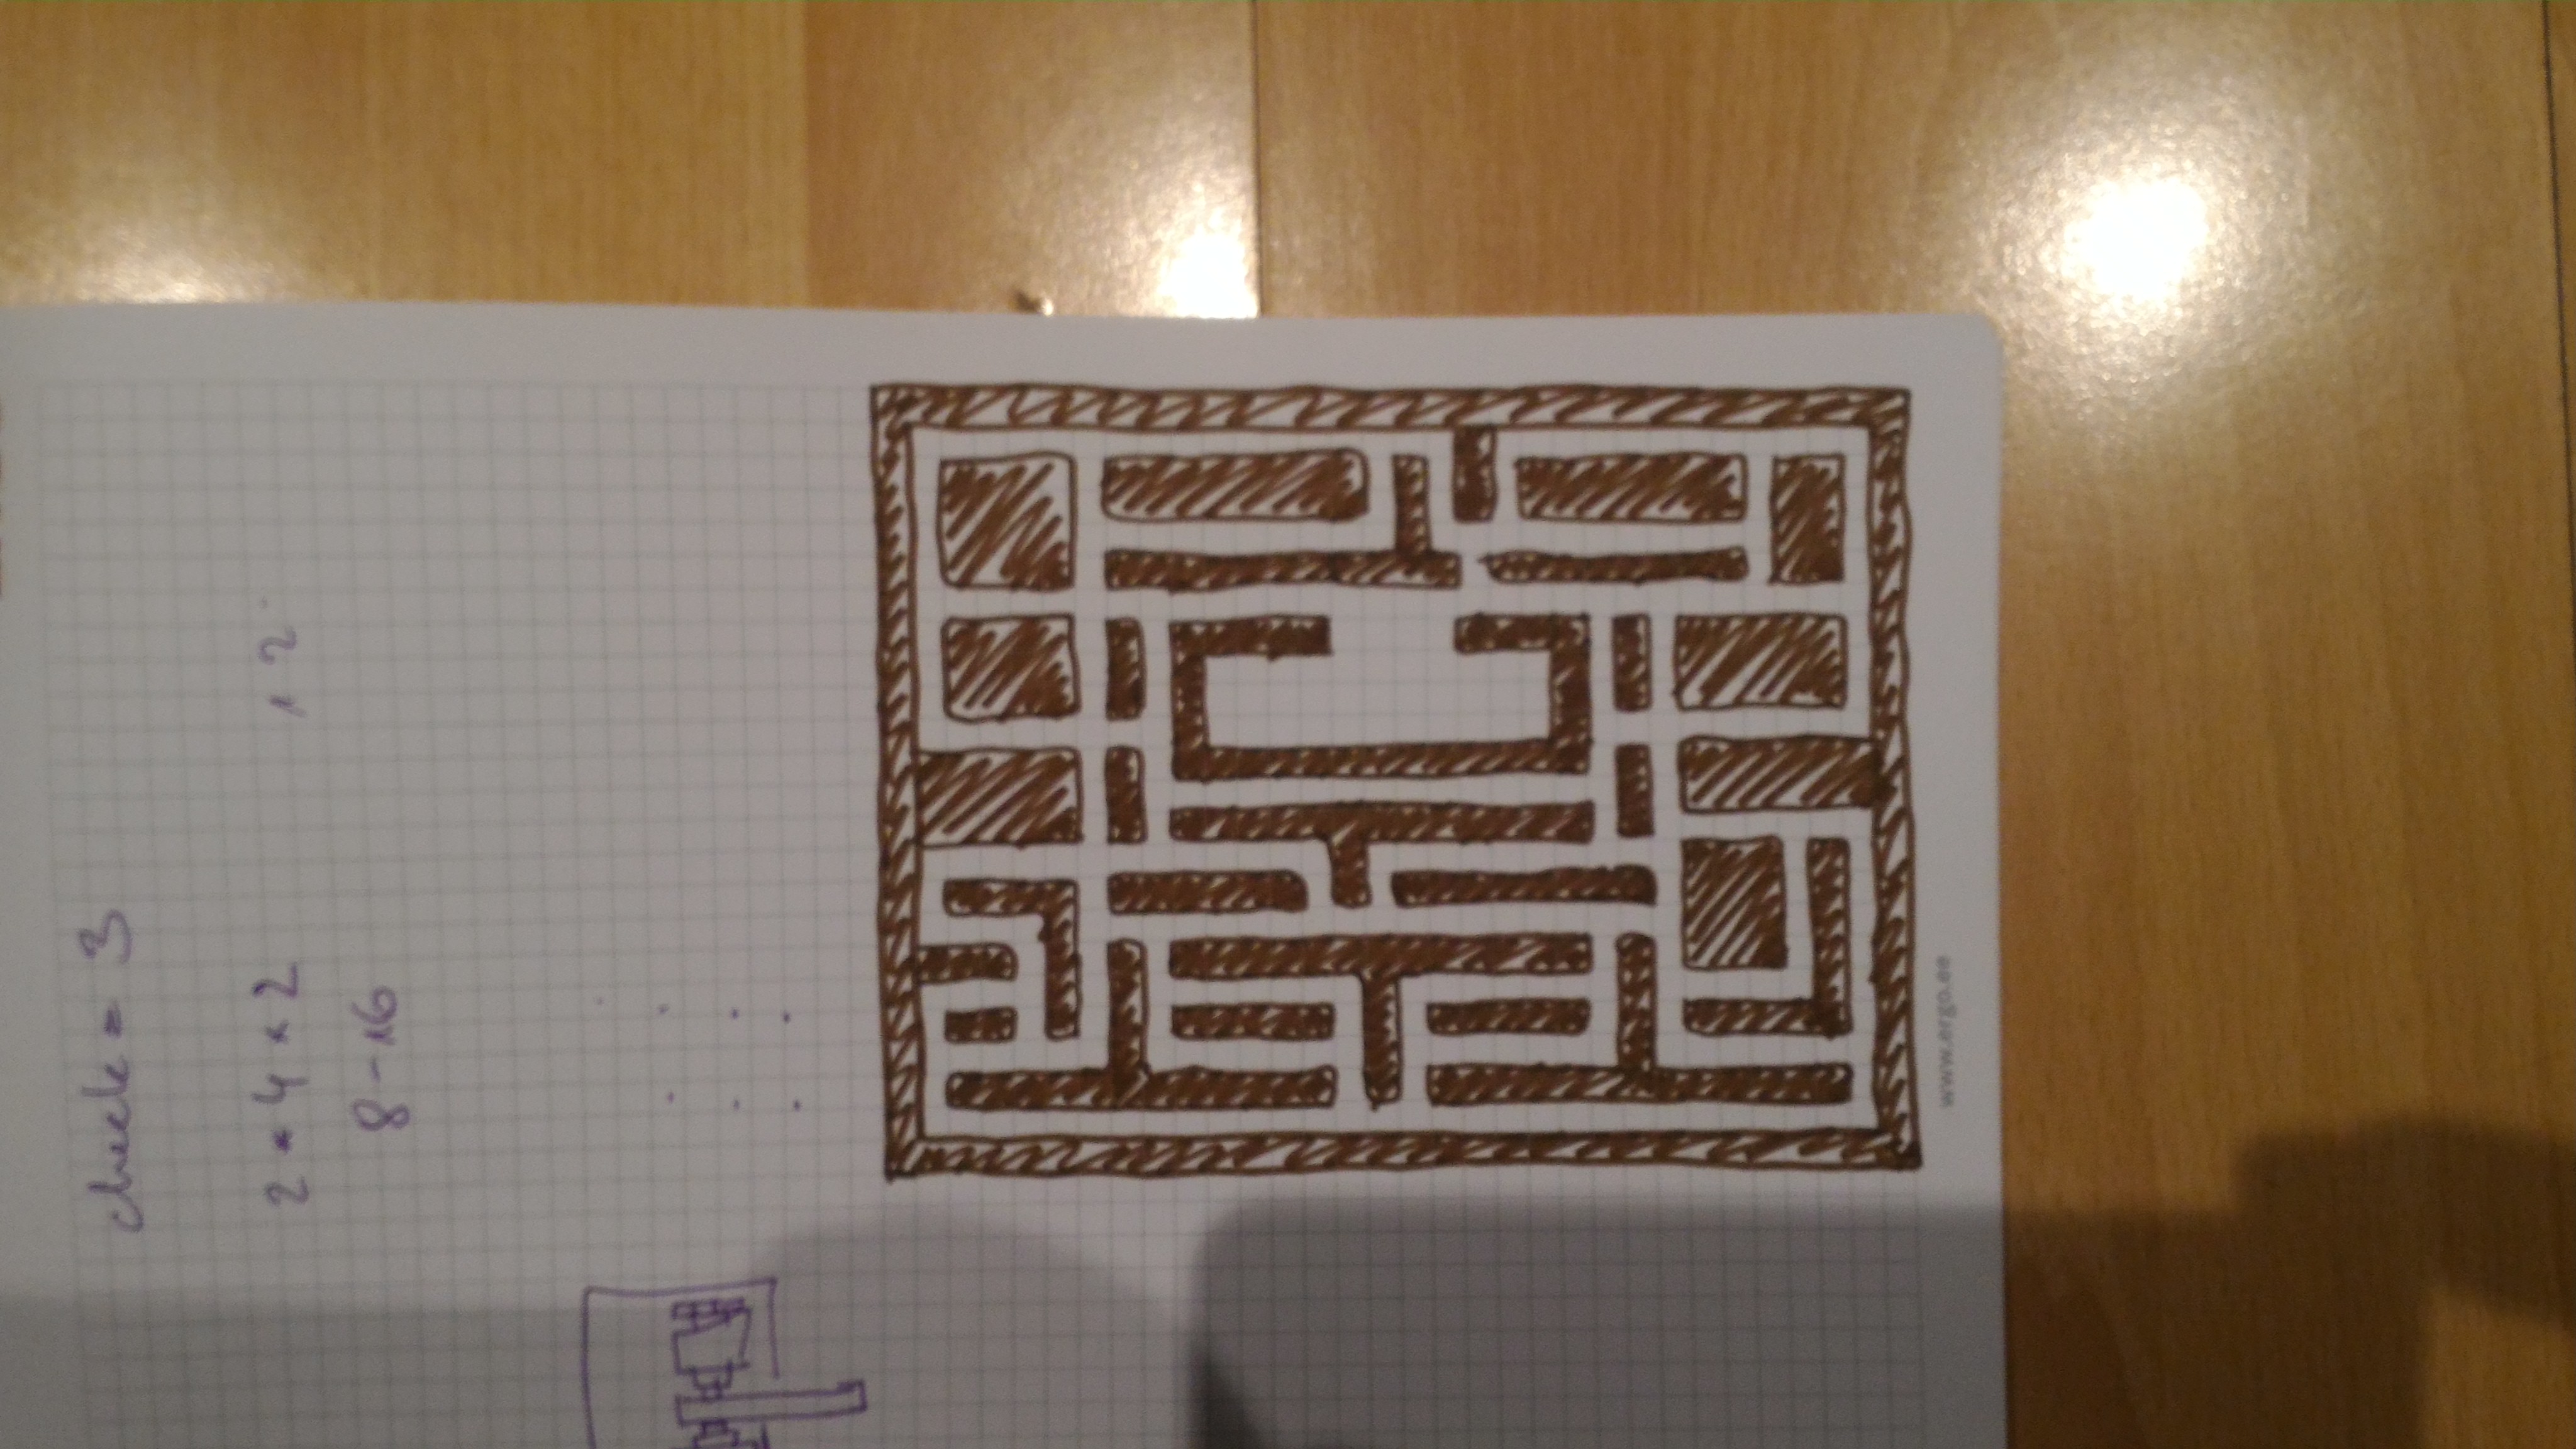 check = 3
2 * 4 * 2
1 2
8 - 16
www.ergo.ee